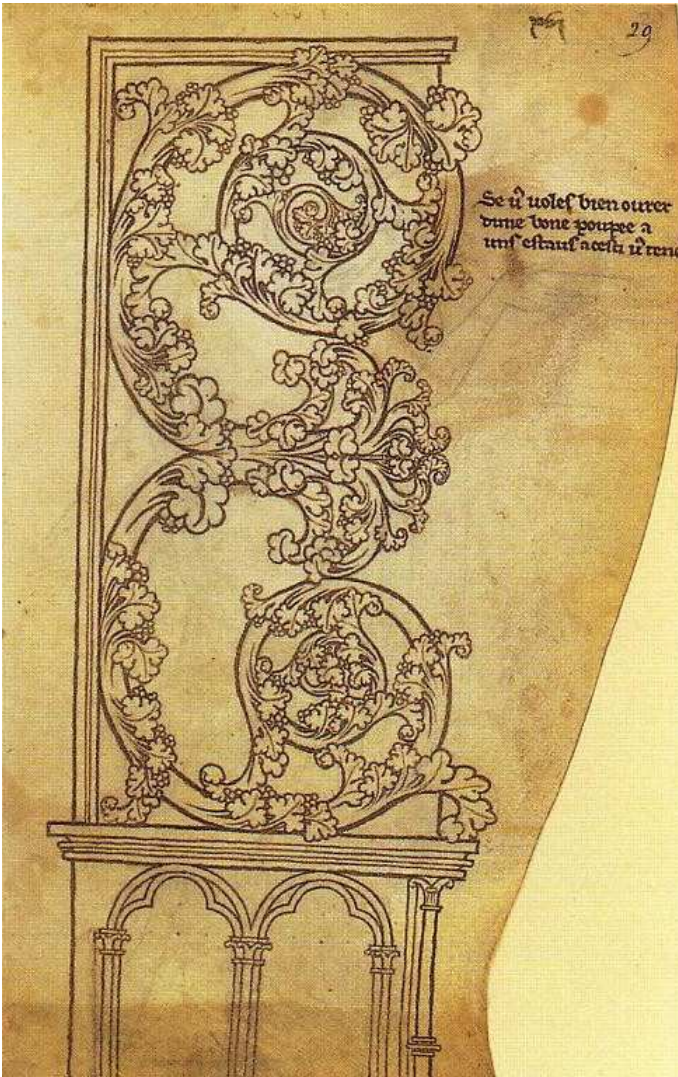 29
Se u᷒ uoleſ bien ouurer
dune bone poupee a
unſ eſtauſ a ceſti u᷒ tene